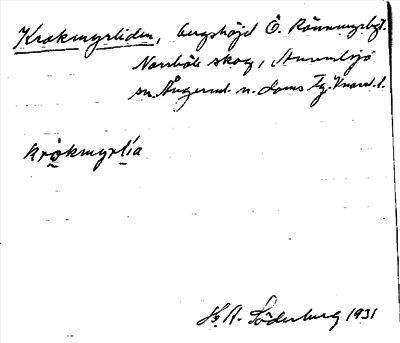 Krokmyrliden, bergshöjd Ö. Rönnmyrbgt.
Norrböle skog, Anundsjö
sn. Ångerml. n. Doms fg. Kvard. l.
krokmyrlía
Hj. A. Söderberg 1931